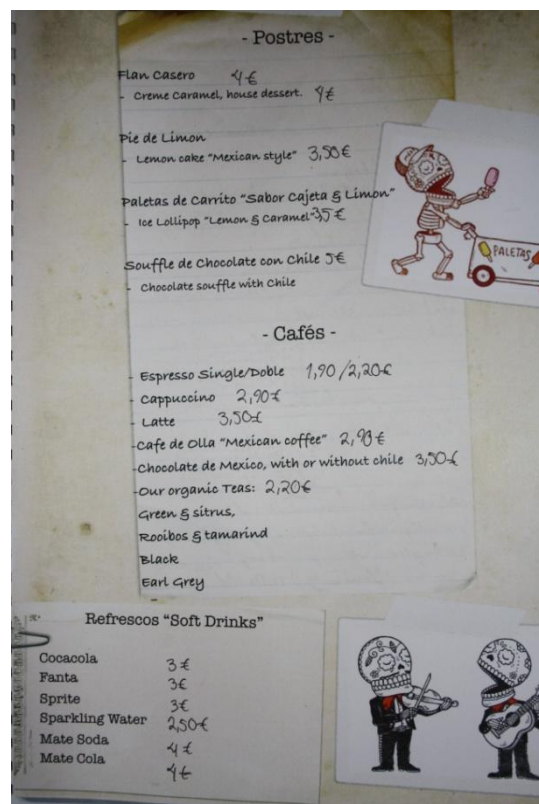 - Postres -
Flan Casero 4 €
- Creme Caramel, house dessert. 4€
Pie de Limon
- Lemon cake "Mexican style" 3,50€
Paletas de Carrito "Sabor Cajeta & Limon"
- Ice Lollipop "Lemon & Caramel" 3,5 €
Souffle de Chocolate con Chile 5€
- Chocolate souffle with Chile
PALETAS
- Cafés -
- Espresso Single/Doble 1,90 / 2,20€
- Cappuccino 2,90€
- Latte 3,50€
-Cafe de Olla "Mexican coffee" 2,90€
-Chocolate de Mexico, with or without chile 3,50€
-Our organic Teas: 2,20€
Green & sitrus,
Rooibos & tamarind
Black
Earl Grey
Refrescos "Soft Drinks"
Cocacola 3 €
Fanta 3€
Sprite 3€
Sparkling Water 2,50€
Mate Soda 4 €
Mate Cola 4€